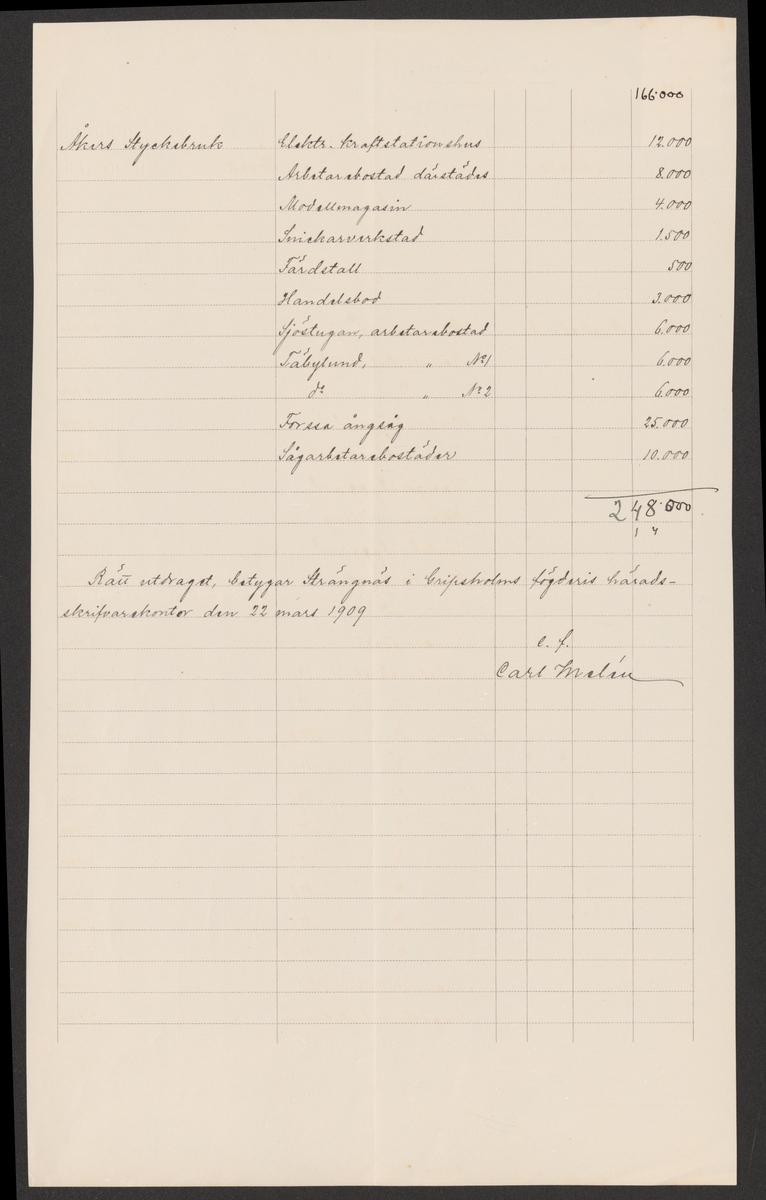 166.000
Åkers Styckebruk Elektr. kraftstationshus 12.000
Arbetarebostad därstädes 8.000
Modellmagasin 4.000
Snickarverkstad 1.500
Färdstall 500
Handelsbod 3.000
Sjöstugan, arbetarebostad 6.000
Täbylund, " No 1 6.000
do " No 2 6.000
Forssa ångsåg 25.000
Sågarbetarebostäder 10.000
248.000
Rätt utdraget, betygar Strängnäs i Gripsholms fögderis härads-
skrifvarekontor den 22 mars 1909
e. f.
Carl Melén